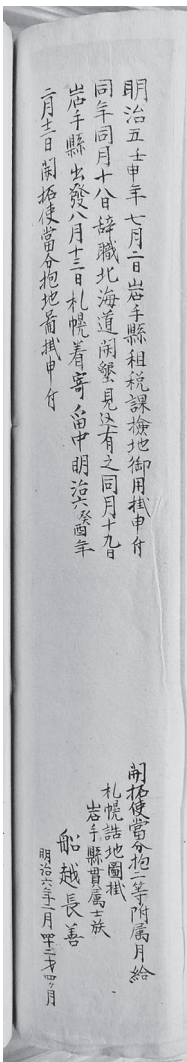 明治五壬申年七月二日岩手縣租税課檢地御用掛申付
同年同月十八日辞職北海道開墾見込有之同月十九日
岩手縣出發八月十三日札幌着寄留中明治六癸酉年
二月十二日開拓使當分抱地圖掛申付
開拓使當分抱二等附属月給
札幌詰地圖掛
岩手縣貫属士族
船越長善
明治六年二月四十二才四ヶ月